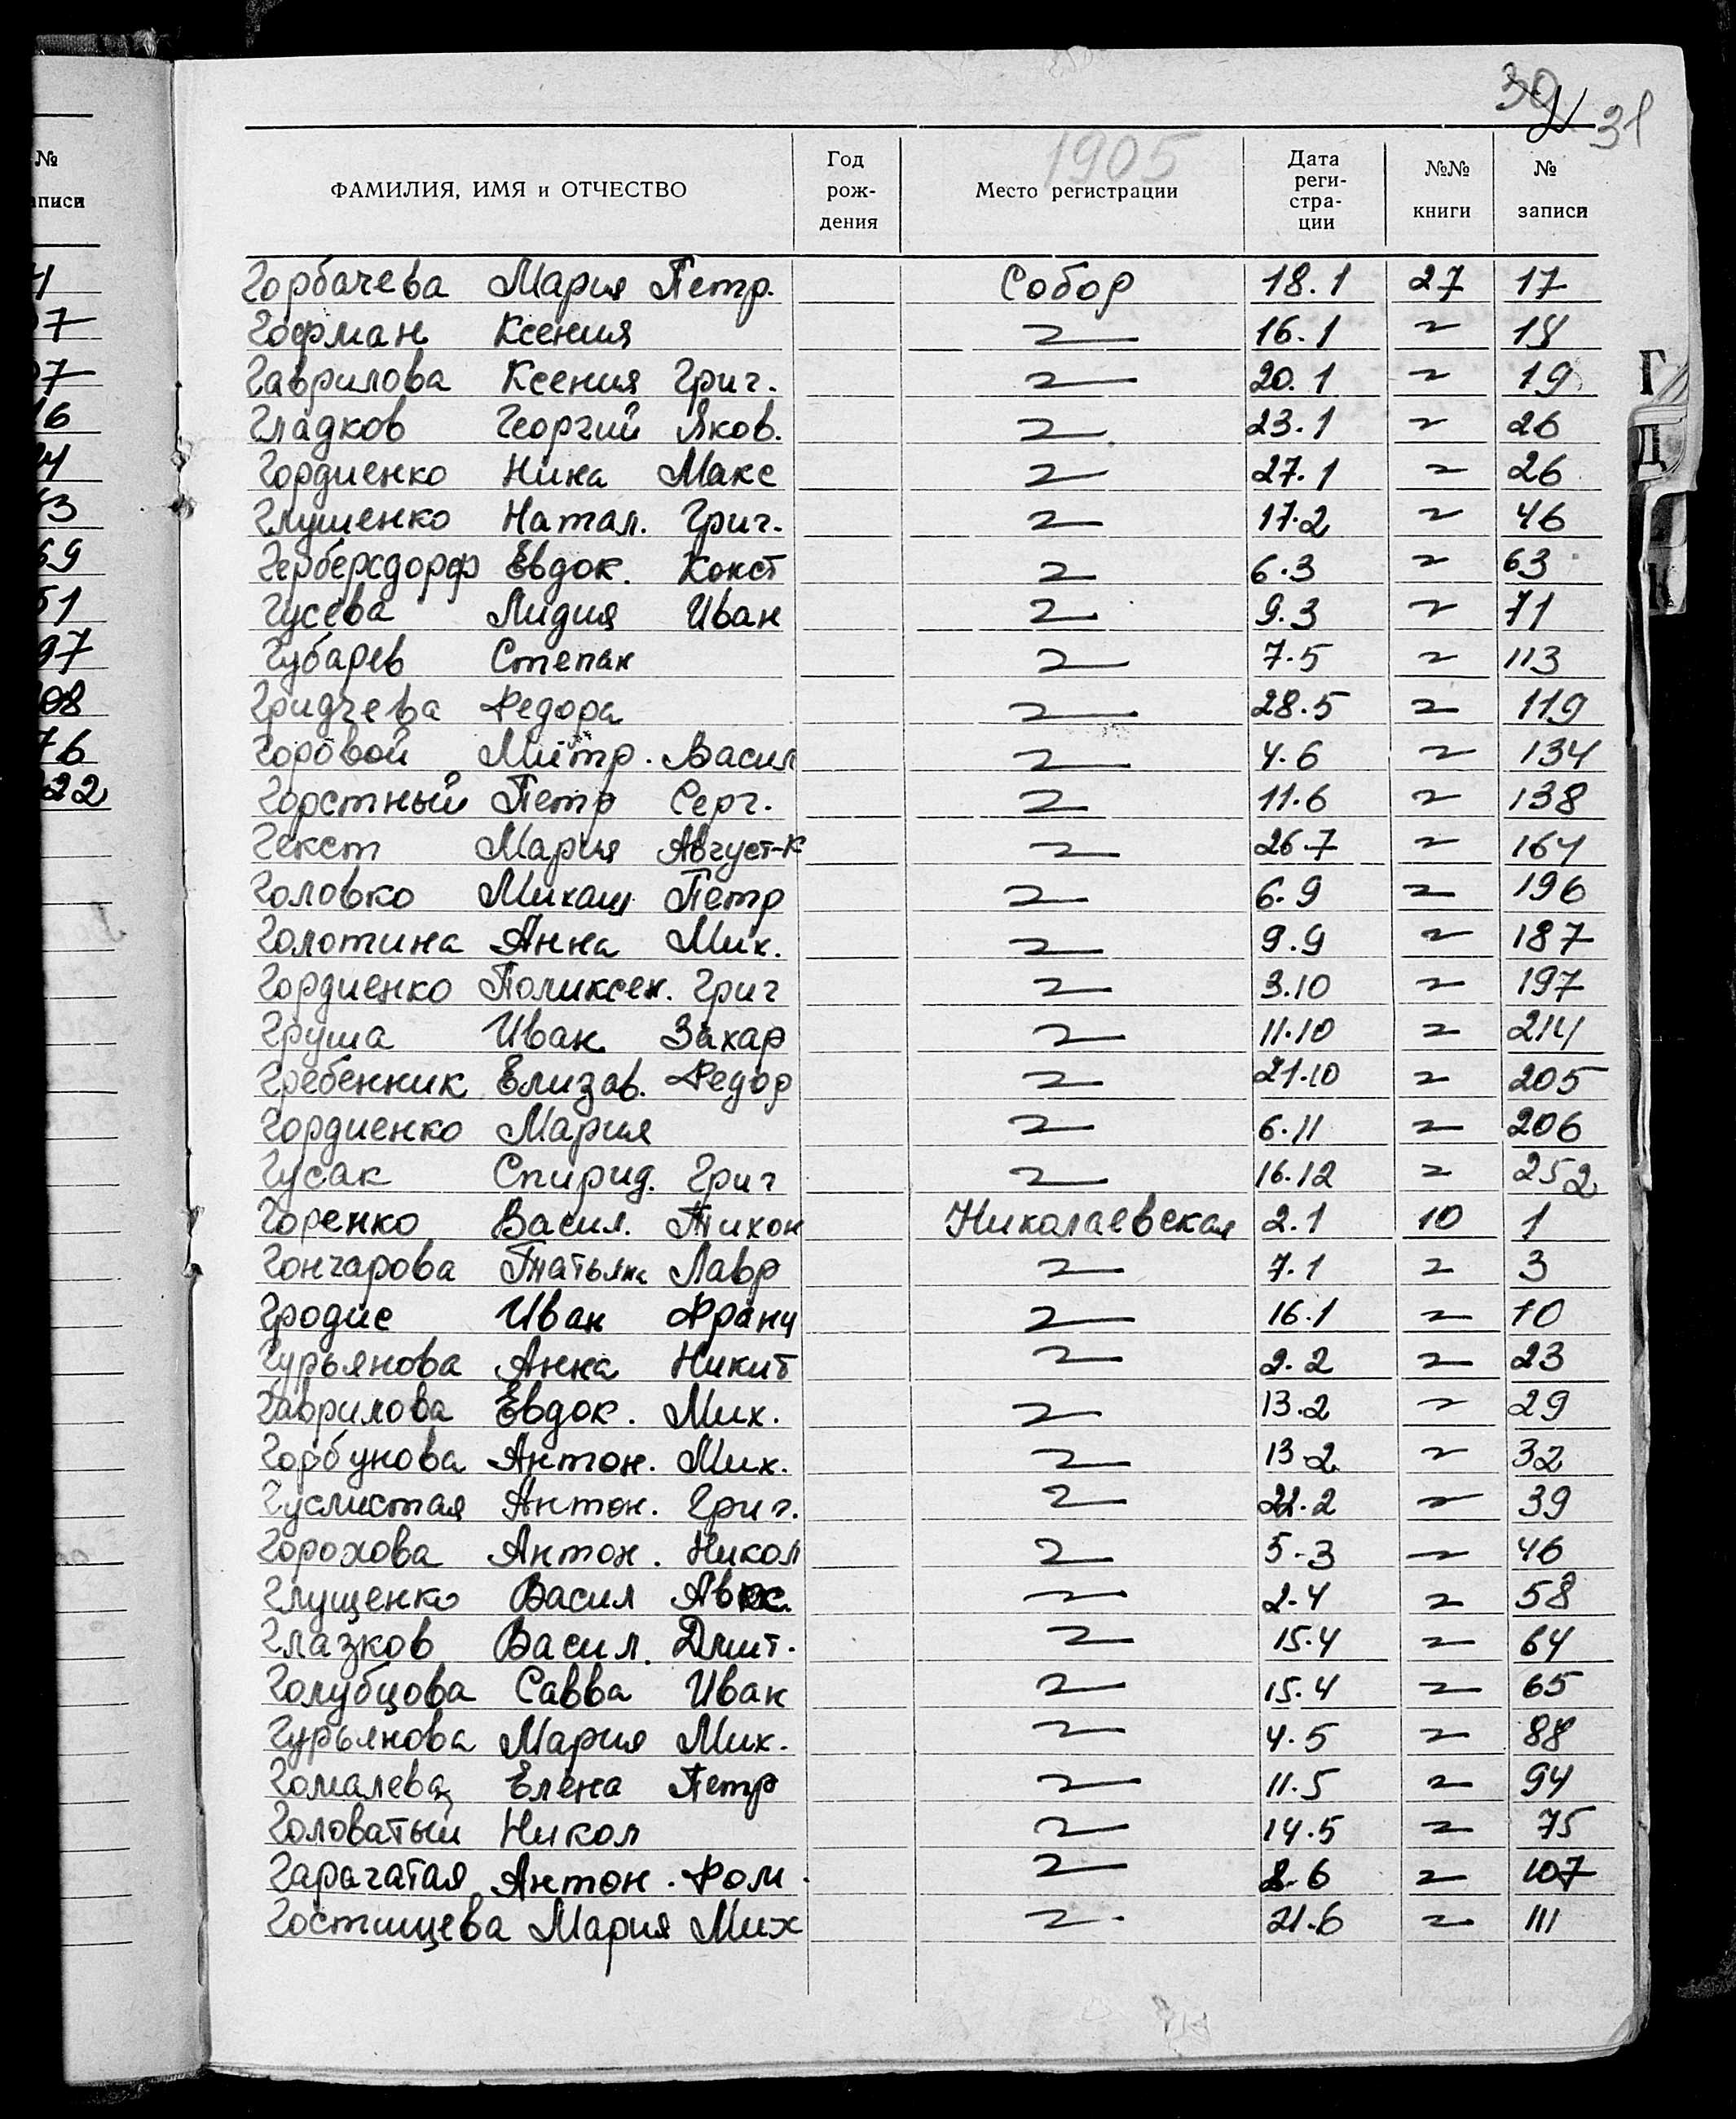 30 31
1905
ФАМИЛИЯ, ИМЯ и ОТЧЕСТВО Год рож- дения Место регистрации Дата реги- стра- ции №№ книги № записи
Горбачева Мария Петр. Собор 18.1 27 17
Гофман Ксения 〃 16.1 〃 18
Гаврилова Ксения Григ. 〃 20.1 〃 19
Гладков Георгий Яков. 〃 23.1 〃 26
Гордиенко Нина Макс 〃 27.1 〃 26
Глушенко Натал. Григ. 〃 17.2 〃 46
Герберсдорф Евдок. Конст 〃 6.3 〃 63
Гусева Лидия Иван 〃 9.3 〃 71
Губарев Степан 〃 7.5 〃 113
Гридчева Федора 〃 28.5 〃 119
Горовой Митр. Васил 〃 4.6 〃 134
Горстный Петр Серг. 〃 11.6 〃 138
Гекст Мария Август-к 〃 26.7 〃 164
Головко Михаил Петр 〃 6.9 〃 196
Голотина Анна Мих. 〃 9.9 〃 187
Гордиенко Поликсен. Григ 〃 3.10 〃 197
Груша Иван Захар 〃 11.10 〃 214
Гребенник Елизав. Федор 〃 21.10 〃 205
Гордиенко Мария 〃 6.11 〃 206
Гусак Спирид. Григ 〃 16.12 〃 252
Горенко Васил. Тихон Николаевская 2.1 10 1
Гончарова Татьяна Лавр 〃 7.1 〃 3
Гродис Иван Франц 〃 16.1 〃 10
Гурьянова Анна Никит 〃 2.2 〃 23
Гаврилова Евдок. Мих. 〃 13.2 〃 29
Горбунова Антон. Мих. 〃 13.2 〃 32
Гуслистая Антон. Григ. 〃 22.2 〃 39
Горохова Антон. Никол 〃 5.3 〃 46
Глущенко Васил 〃 2.4 〃 58
Глазков Васил. Дмит. 〃 15.4 〃 64
Голубцова Савва Иван 〃 15.4 〃 65
Гурьянова Мария Мих. 〃 4.5 〃 88
Гомалева Елена Петр 〃 11.5 〃 94
Головатый Никол 〃 14.5 〃 75
Гарачатая Антон. Ром. 〃 2.6 〃 107
Гостищева Мария Мих 〃 21.6 〃 111
Г
Д